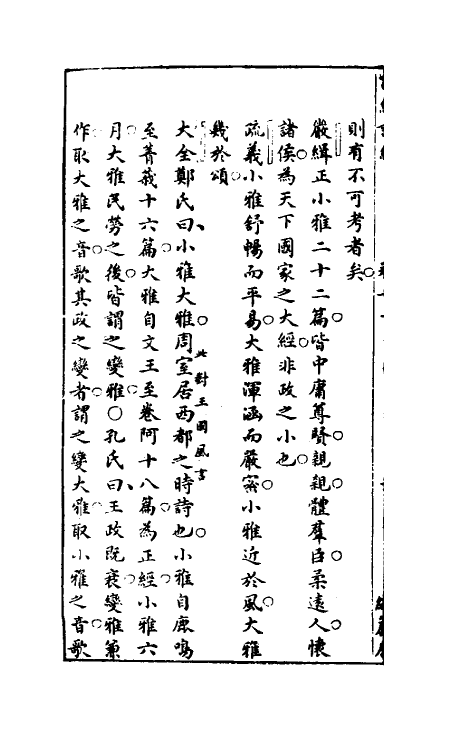 則有不可考者矣
嚴緝正小雅二十二篇皆中庸尊賢親親體羣臣柔遠人懷
諸侯為天下國家之大經非政之小也
疏義小雅舒暢而平易大雅渾涵而嚴密小雅近於風大雅
幾於頌
大全鄭氏曰小雅大雅周室居西都之時詩也小雅自鹿鳴
此對王國風言
至菁莪十六篇大雅自文王至卷阿十八篇為正經小雅六
月大雅民勞之後皆謂之變雅〇孔氏曰王政既衰變雅兼
作取大雅之音歌其政之變者謂之變大雅取小雅之音歌